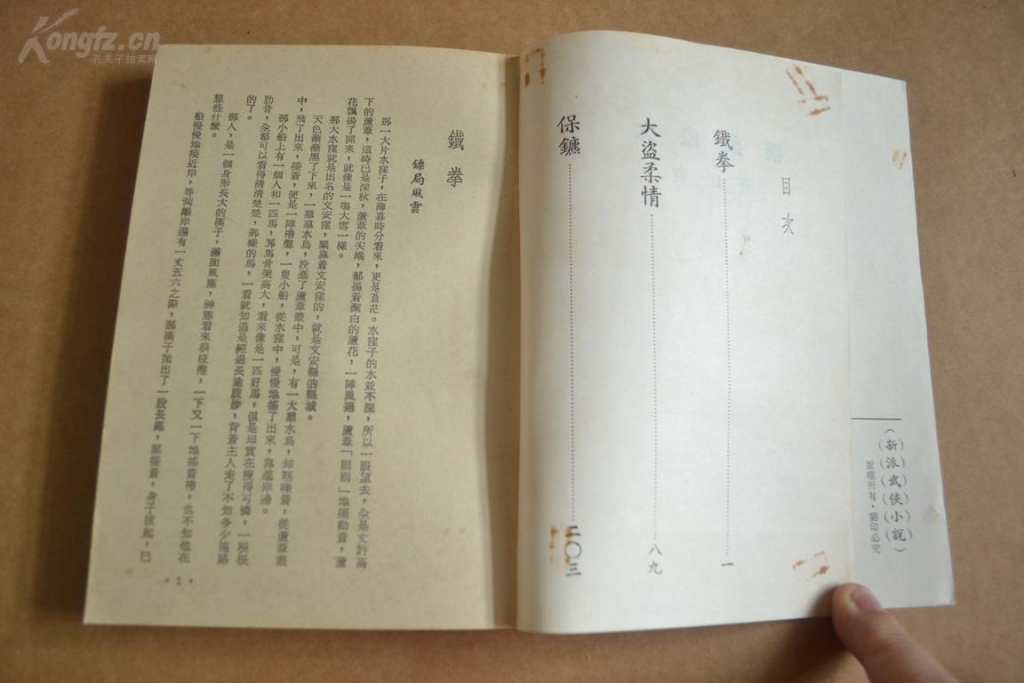 Kongfz.cn
孔夫子拍卖网
（新派武俠小說）
版權所有・翻印必究
目次
鐵拳……一
大盜柔情……八九
保鑣……二〇三
鐵拳
鏢局風雲
那一大片水窪子，在薄暮時分看來，更是蒼茫。水窪子的水並不深，所以一眼望去，全是丈許高
下的蘆葦，這時已是深秋，蘆葦的尖端，都揚着潔白的蘆花，一陣風過，蘆葦「刷刷」地擺動着，蘆
花飄揚了開來，就像是一塲大雪一樣。
那大水窪就是出名的文安窪，緊靠着文安窪的，就是文安縣的縣城。
天色漸漸黑了下來，一羣羣水鳥，投進了蘆葦叢中，可是，有一大羣水鳥，却聒噪着，從蘆葦叢
中，飛了出來，接着，便是一陣槳聲，一隻小船，從水窪中，慢慢地搖了出來，靠近岸邊。
那小船上有一個人和一匹馬，那馬骨架高大，看來像是一匹好馬，但是却實在瘦得可憐，一根根
肋骨，全都可以看得清清楚楚，那樣的馬，一看就知道是經過長途跋涉，背着主人走了不知多少道路
的了。
那人，是一個身形長大的漢子，滿面風塵，神態看來很疲倦，一下又一下地搖着槳，也不知他在
想些什麼。
船慢慢地接近岸，等到離岸還有一丈五六之際，那漢子拋出了一股長繩，緊接着，身子拔起，已
・1・